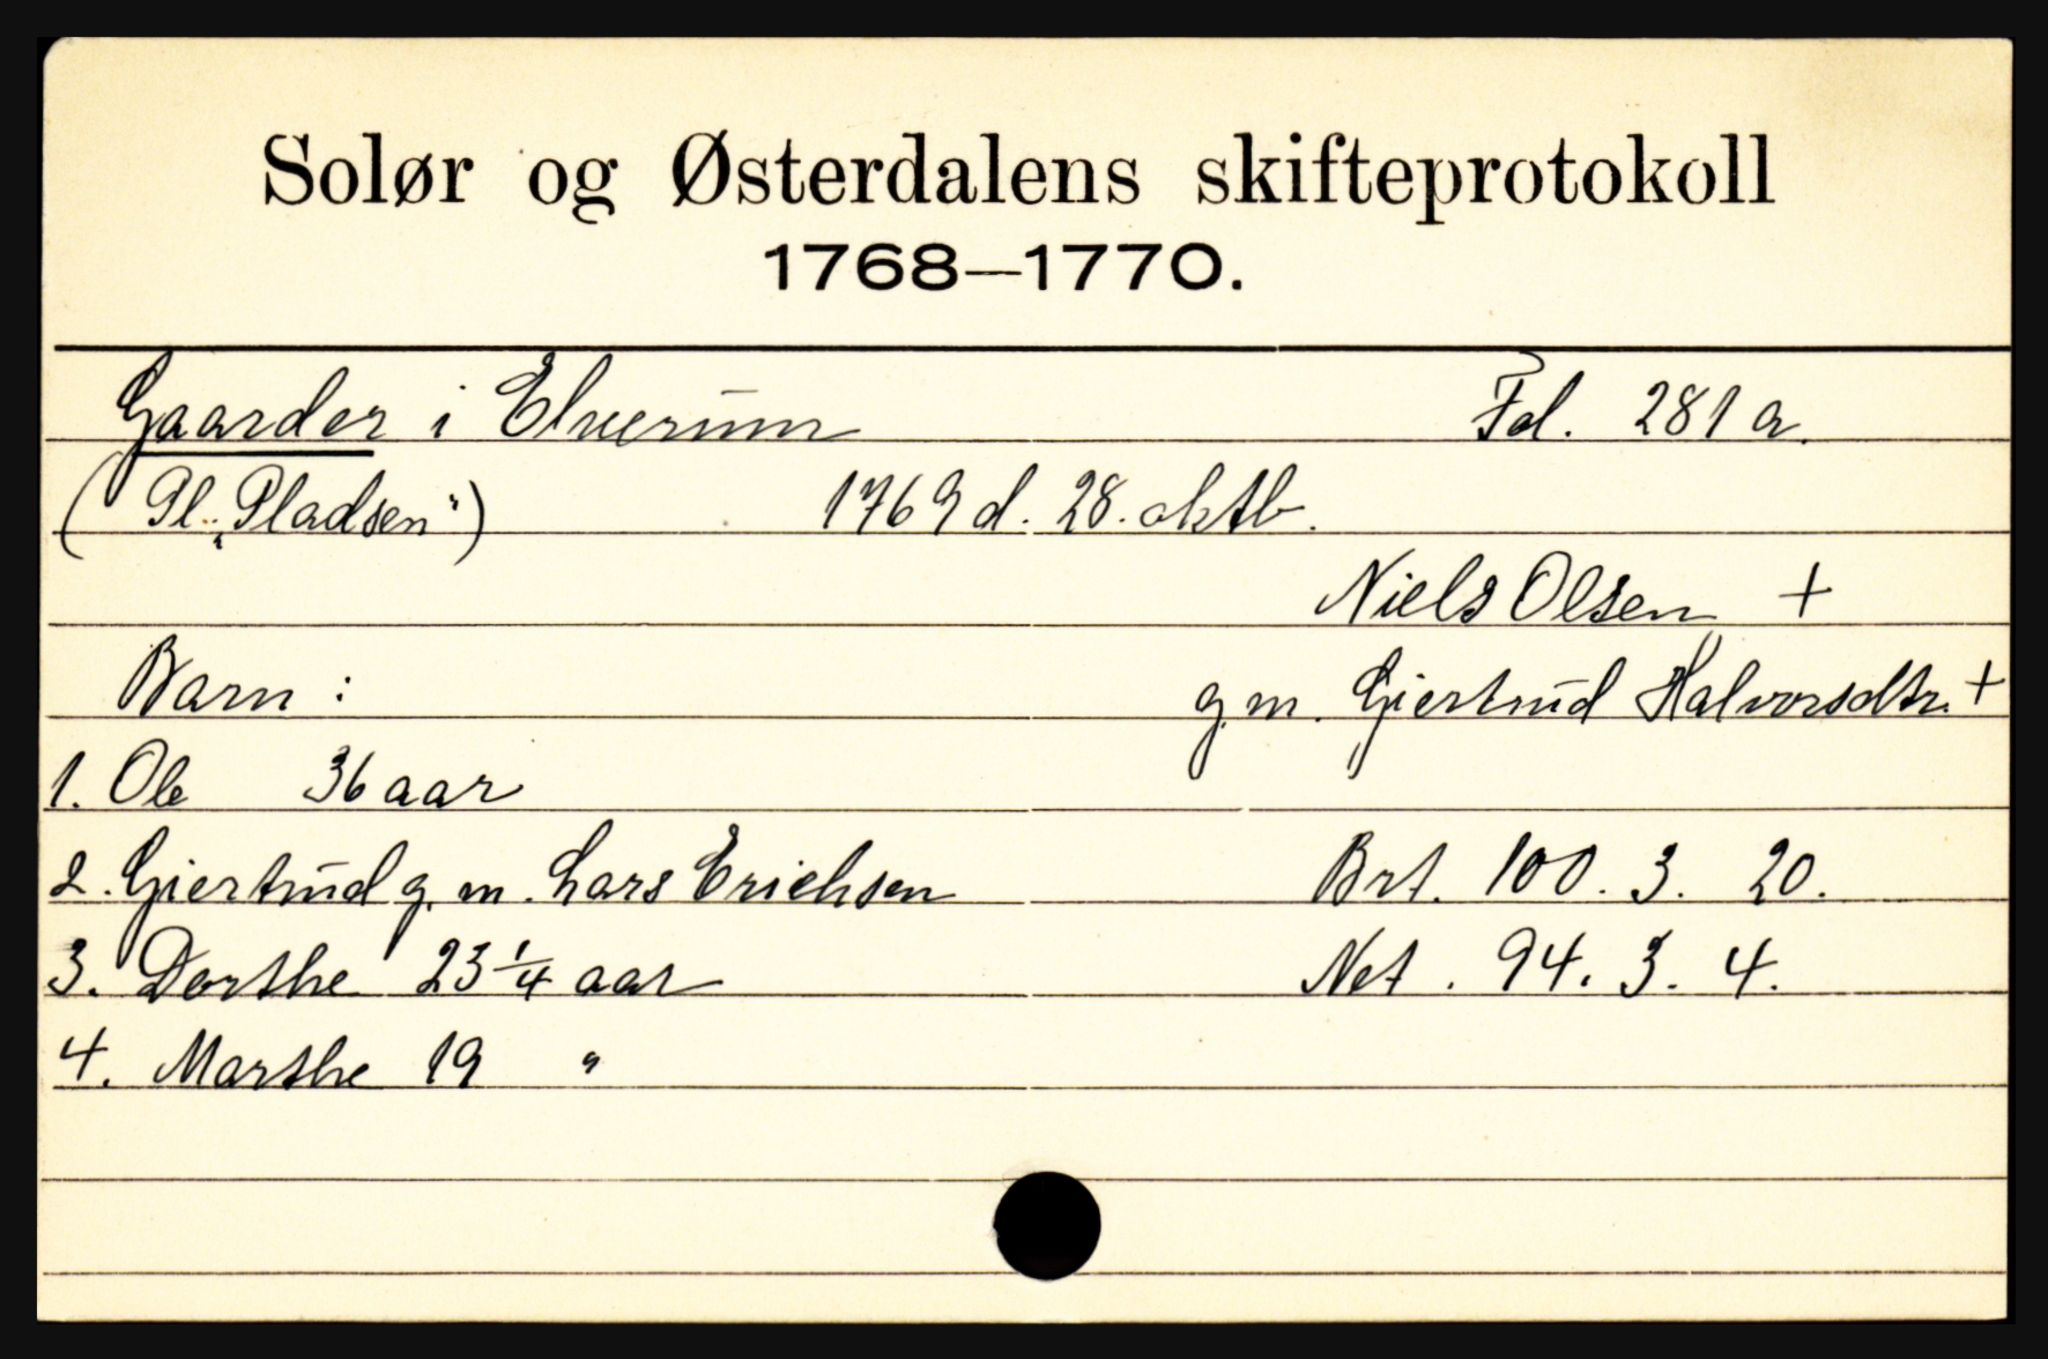 Solør og Østerdalens skifteprotokoll
1768—1770.
Gaarder i Elverum Fol. 281 a.
(Pl. „Pladsen") 1769 d. 28. oktb.
Niels Olsen +
Barn : g. m. Giertrud Halvorsdtr. +
1. Ole 36 aar
2. Giertrud g. m. Lars Erichsen Brt. 100. 3. 20.
3. Dorthe 23 1/4 aar Net. 94. 3. 4.
4. Marthe 19 "